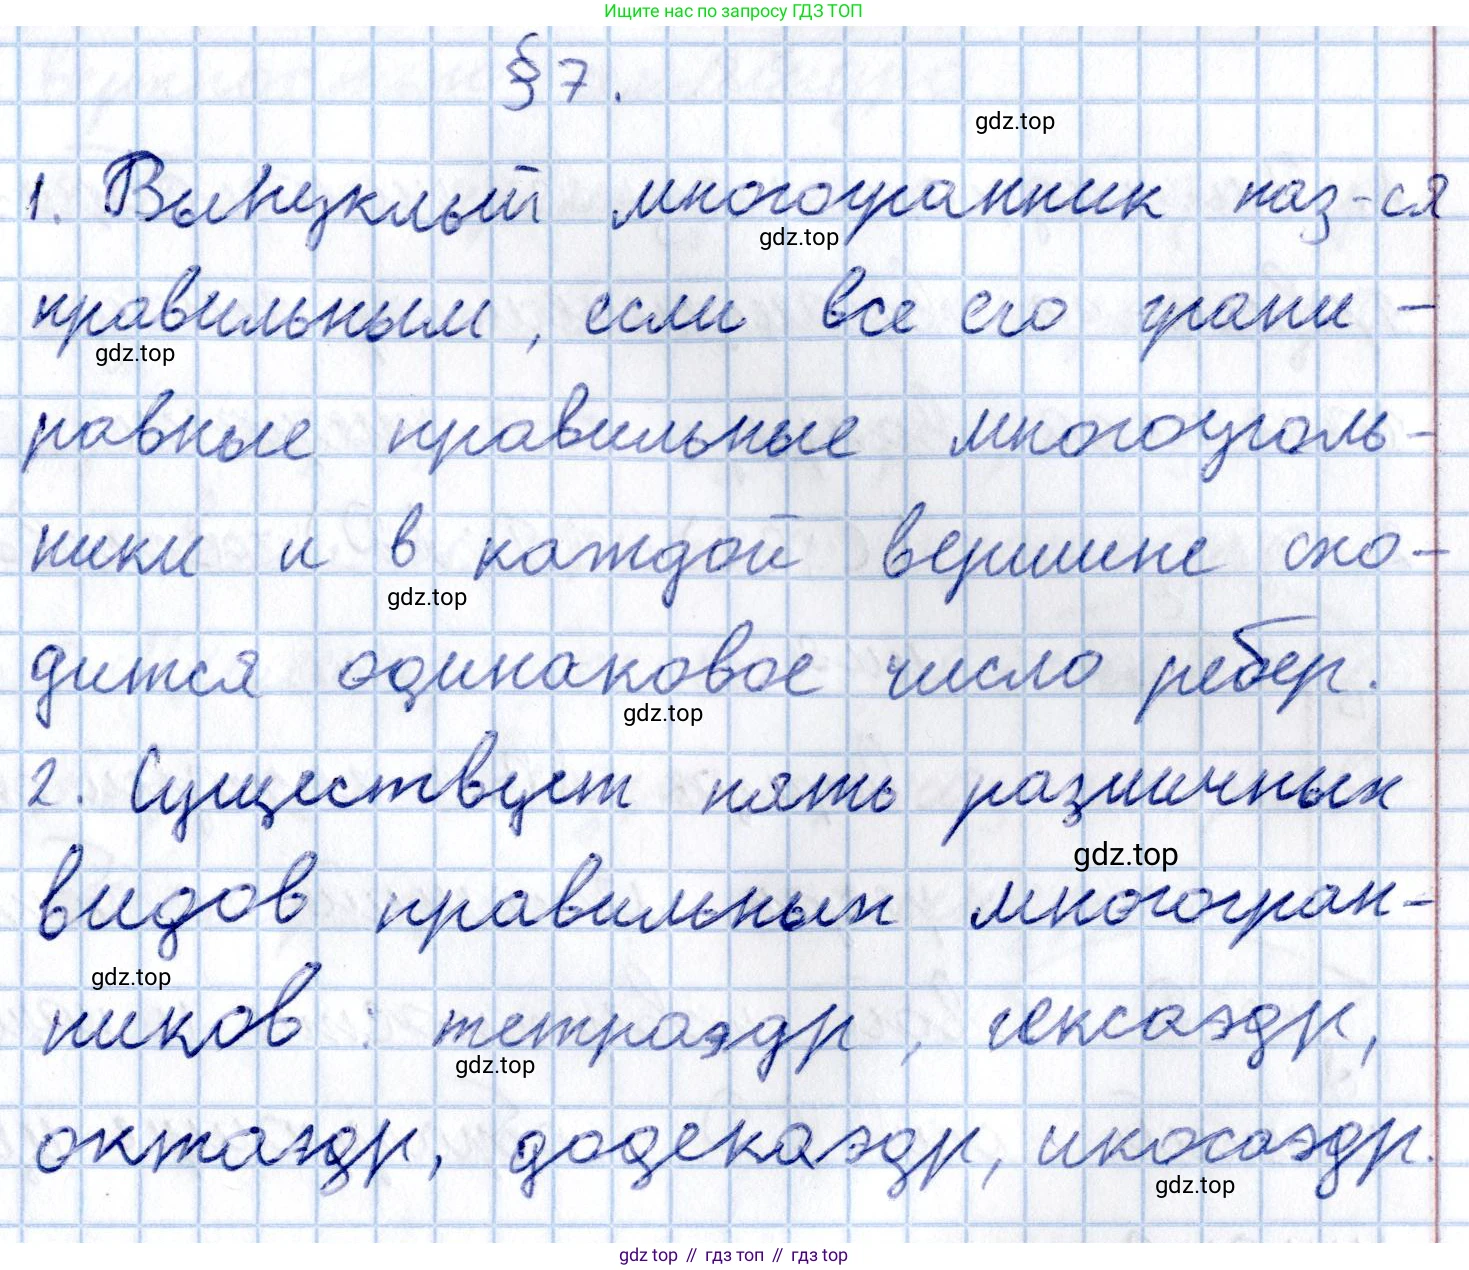 Ищите нас по запросу ГДЗ ТОП
§ 7.
gdz.top
1. Выпуклый многогранник наз-ся
gdz.top
правильным, если все его грани -
gdz.top
равные правильные многоуголь-
ники и в каждой вершине схо-
gdz.top
дится одинаковое число ребер.
gdz.top
2. Существует пять различных
gdz.top
видов правильных многогран-
gdz.top
ников: тетраэдр, гексаэдр,
gdz.top
октаэдр, додекаэдр, икосаэдр.
gdz.top
gdz top // гдз топ // гдз top